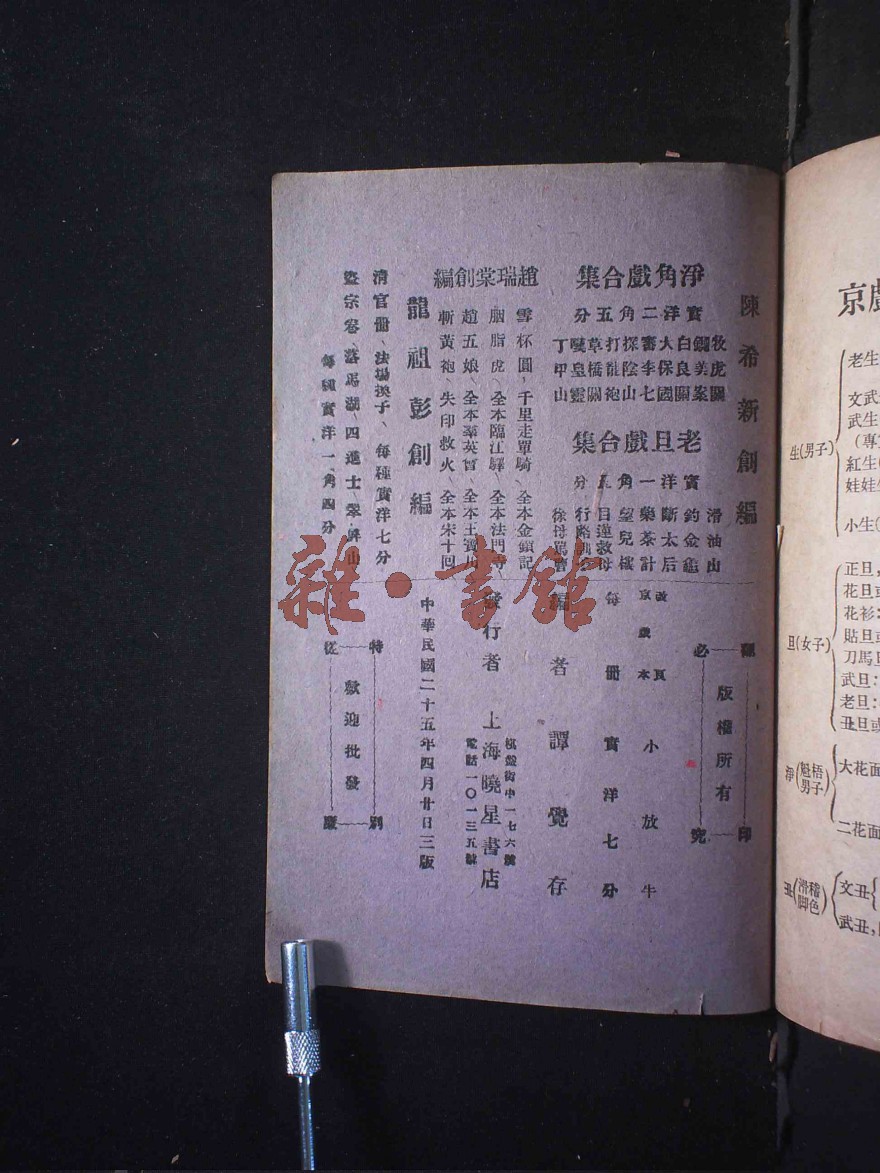 陳希新創編
淨角戲合集
實洋二角五分
牧虎關
鍘美案
白良關
大保國
審李七
探陰山
打龍袍
草橋關
雙皇靈
丁甲山
老旦戲合集
實洋一角五分
滑油山
釣金龜
斷太后
藥茶計
望兒樓
目蓮救母
行路訓子
徐母罵曹
趙瑞棠創編
雪杯圓、千里走單騎、全本金鎖記
胭脂虎、全本臨江驛、全本法門寺
趙五娘、全本羣英會、全本王寶川
斬黃袍、失印救火、全本宋十回
龍祖彭創編
清官册、法場換子、每種實洋七分
盜宗卷、落馬湖、四進士、翠屏山
每種實洋一角四分
翻印必究
版權所有
改良京戲本
小放牛
每冊實洋七分
編者 譚覺存
發行者 上海曉星書店
棋盤街中一七六號
電話一〇一三五號
中華民國二十五年四月廿日三版
特別從廉
歡迎批發
雜·書館
京
生(男子)
老生
文武
武生
紅生
娃娃
小生
旦(女子)
正旦,
花旦或
花衫:
貼旦或
刀馬旦
武旦:
老旦:
丑旦或
淨(魁梧男子)
大花面
二花面
丑(滑稽脚色)
文丑
武丑,